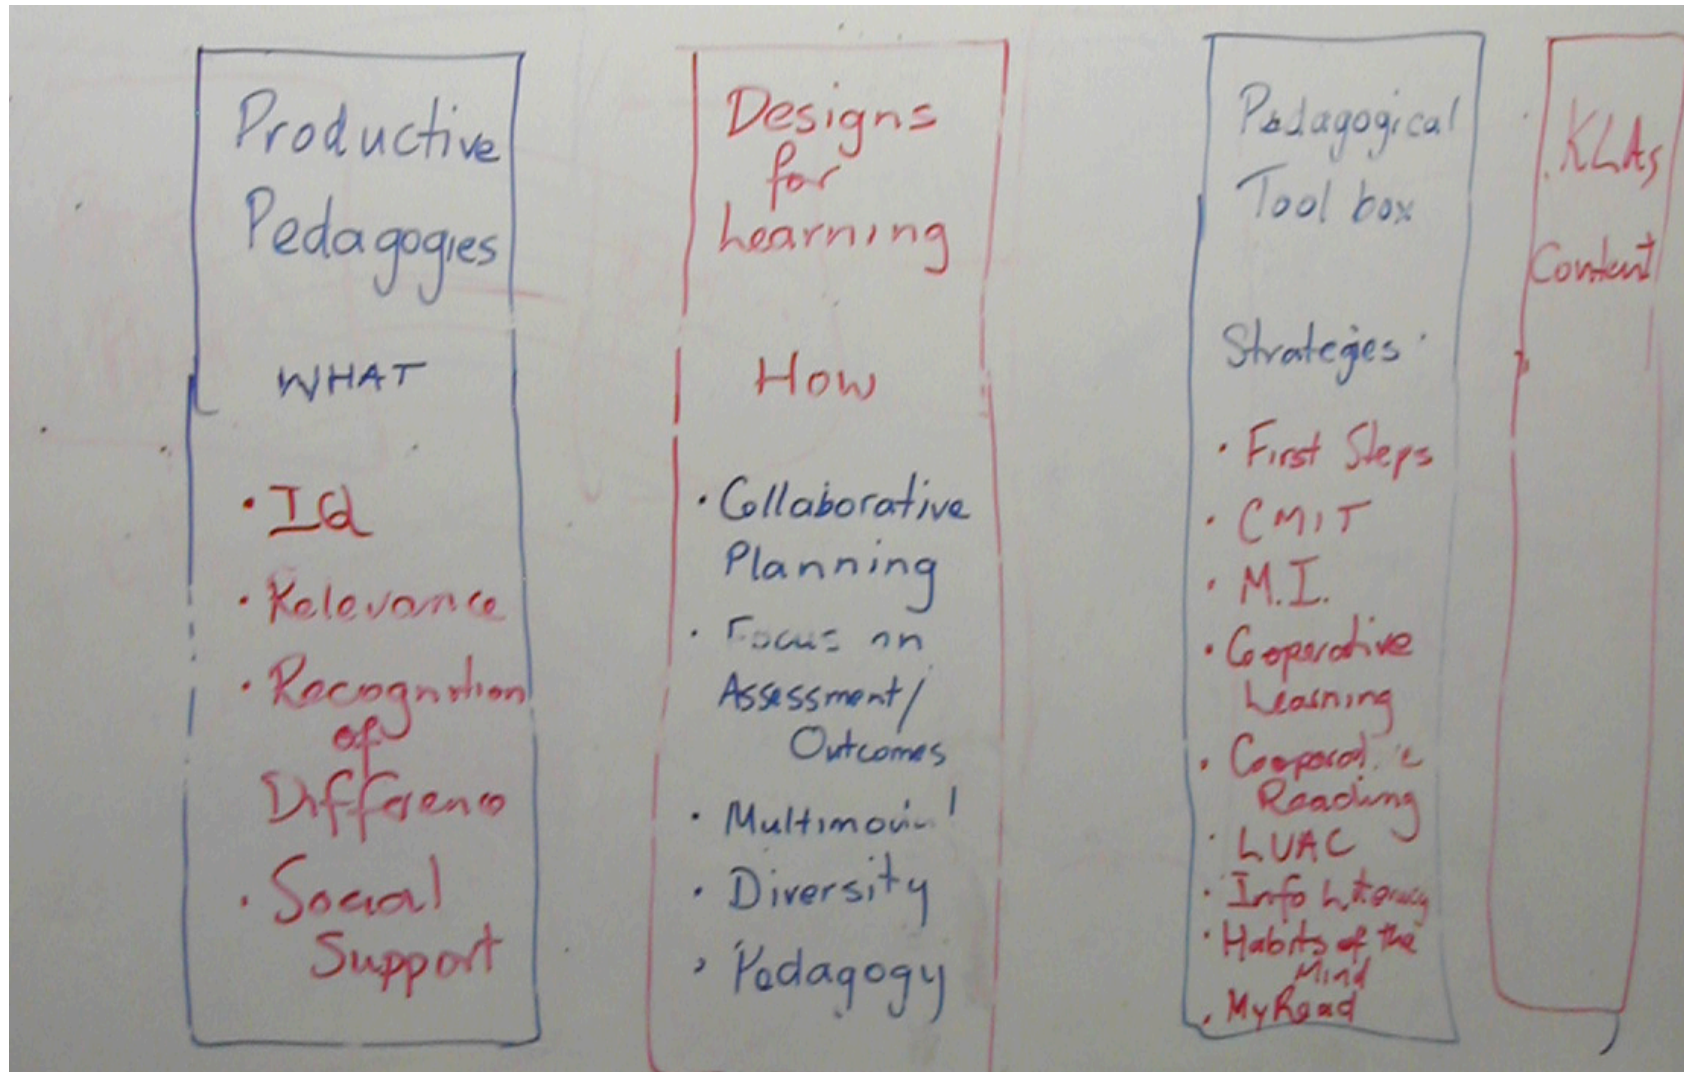 Productive
Pedagogies
WHAT
• IQ
• Relevance
• Recognition
of
Difference
• Social
Support
Designs
for
Learning
How
• Collaborative
Planning
• Focus on
Assessment/
Outcomes
•
• Diversity
• Pedagogy
Pedagogical
Tool box
Strategies
• First Steps
• CMIT
• M.I.
• Cooperative
Learning
• Cooperative
Reading
• LUAC
• Info Literacy
• Habits of the
Mind
• MyRead
KLAs
Content